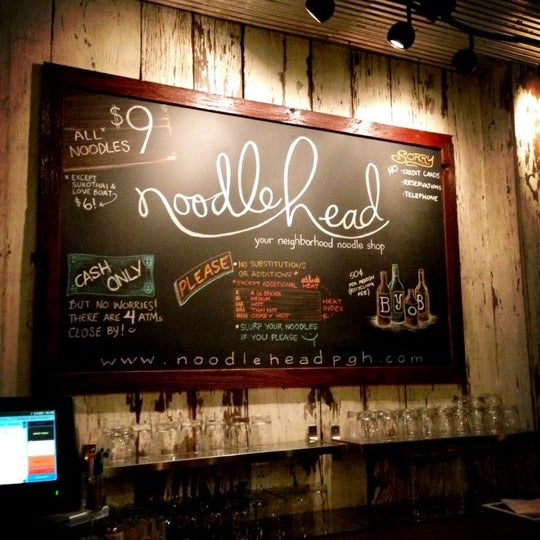 $9
ALL*
NOODLES
* EXCEPT
SUKOTHAI &
LOVE BOAT.
$6!
noodlehead
your neighborhood noodle shop
SORRY
NO
- CREDIT CARDS
- RESERVATIONS
- TELEPHONE
CASH
ONLY
BUT NO WORRIES!
THERE ARE 4 ATMs
CLOSE BY!
PLEASE
* NO SUBSTITUTIONS
OR ADDITIONS *
* EXCEPT ADDITIONAL
HEAT
MEDIUM
HOT
THAI HOT
CRAZY HOT
HEAT
INDEX
* SLURP YOUR NOODLES
IF YOU PLEASE
50¢
PER PERSON
(RECYCLING
FEE)
ByoB
www.noodleheadpgh.com